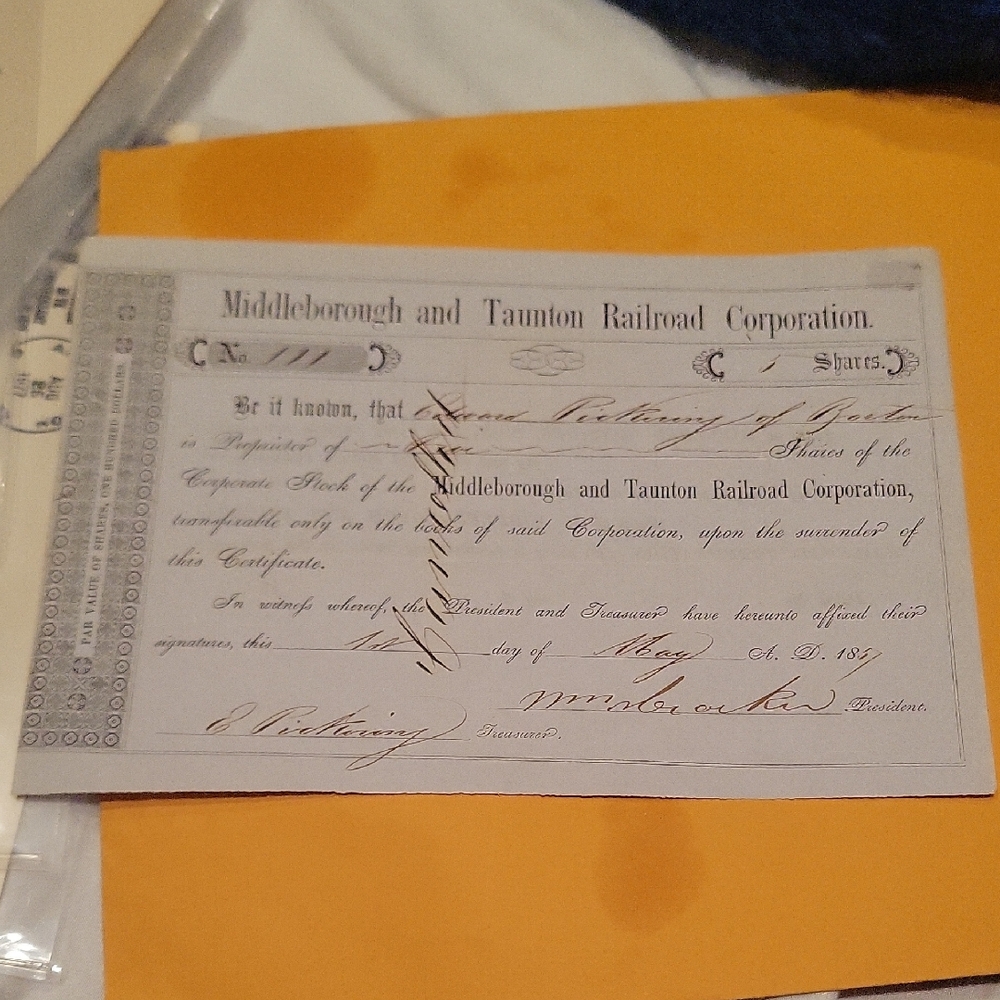 Middleborough and Taunton Railroad Corporation.
No. 111
1 Shares.
Be it known, that Edward Pickering of Boston
is Proprietor of One Shares of the
Corporate Stock of the Middleborough and Taunton Railroad Corporation,
transferable only on the books of said Corporation, upon the surrender of
this Certificate.
In witness whereof, the President and Treasurer have hereunto affixed their
signatures, this 1st day of May A. D. 1857
Wm Crocker President.
E Pickering Treasurer.
Cancelled
PAR VALUE OF SHARES, ONE HUNDRED DOLLARS.